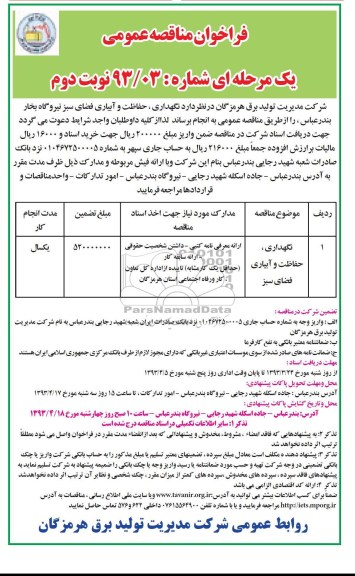 فراخوان مناقصه عمومی
یک مرحله ای شماره : ۹۳/۰۳ نوبت دوم
شرکت مدیریت تولید برق هرمزگان در نظر دارد نگهداری ، حفاظت و آبیاری فضای سبز نیروگاه بخار
بندرعباس ، را از طریق مناقصه عمومی به انجام برساند. لذا از کلیه داوطلبان واجد شرایط دعوت می گردد
جهت دریافت اسناد شرکت در مناقصه ضمن واریز مبلغ ۲۰۰۰۰۰ ریال جهت خرید اسناد و ۱۶۰۰۰ ریال
مالیات بر ارزش افزوده جمعاً مبلغ ۲۱۶۰۰۰ ریال به حساب جاری سپهر به شماره ۰۱۰۴۶۷۲۵۰۰۰۰۵ نزد بانک
صادرات شعبه شهید رجایی بندرعباس بنام این شرکت و با ارائه فیش مربوطه و مدارک ذیل ظرف مدت مقرر
به آدرس بندرعباس - جاده اسکله شهید رجایی - نیروگاه بندرعباس - امور تدارکات - واحد مناقصات و
قراردادها مراجعه فرمایید
ردیف موضوع مناقصه مدارک مورد نیاز جهت اخذ اسناد مناقصه مبلغ تضمین مدت انجام کار
۱ نگهداری ، حفاظت و آبیاری فضای سبز ارائه معرفی نامه کتبی - داشتن شخصیت حقوقی
- ارائه سابقه کار
(حداقل یک کار مشابه) تاییده از اداره کل تعاون
، کار و رفاه اجتماعی استان هرمزگان
۵۲۰۰۰۰۰۰ یکسال
ParsNamadData
تضمین شرکت در مناقصه :
الف : واریز وجه به شماره حساب جاری ۰۱۰۴۶۷۲۵۰۰۰۰۵ نزد بانک صادرات ایران شعبه شهید رجایی بندرعباس به نام شرکت مدیریت
تولید برق هرمزگان
ب: ضمانتنامه معتبر بانکی به نفع کارفرما
ج: ضمانت نامه های صادر شده از سوی موسسات اعتباری غیر بانکی که دارای مجوز لازم از طرف بانک مرکزی جمهوری اسلامی ایران هستند
مهلت دریافت اسناد :
از روز شنبه مورخ ۱۳۹۳/۳/۲۴ تا پایان وقت اداری روز پنج شنبه مورخ ۱۳۹۳/۴/۵
محل و مهلت تحویل پاکات پیشنهادی:
آدرس: بندرعباس - جاده اسکله شهید رجایی - نیروگاه بندرعباس - امور تدارکات ، تا ساعت ۱۵ روز سه شنبه مورخ ۱۳۹۳/۴/۱۷
محل و تاریخ گشایش پاکات پیشنهادی:
آدرس: بندرعباس - جاده اسکله شهید رجایی - نیروگاه بندرعباس - ساعت ۱۰ صبح روز چهارشنبه مورخ ۱۳۹۳/۴/۱۸
تذکر ۱: سایر اطلاعات تکمیلی در اسناد مناقصه درج شده است
تذکر ۲: به پیشنهادهایی که فاقد امضاء ، مشروط، مخدوش و پیشنهاداتی که بعد از انقضاء مدت مقرر در فراخوان واصل می شود مطلقاً
ترتیب اثر داده نخواهد شد
تذکر ۳: پیشنهاد دهنده مکلف است معادل مبلغ سپرده ، تضمینهای معتبر تسلیم یا مبلغ مذکور را به حساب بانکی شرکت واریز یا چک
بانکی تضمینی در وجه شرکت تهیه و حسب مورد ضمانتنامه یا رسید واریز وجه یا چک بانکی را ضمیمه پیشنهاد به شرکت تسلیم نماید به
پیشنهادهای فاقد سپرده ، سپرده های مخدوش ،سپرده های کمتر از میزان مقرر، چک شخصی و نظایر آن ترتیب اثر داده نخواهد شد
ضمنا برای کسب اطلاعات بیشتر می توانید به آدرس www.tavanir.org.ir و یا سایت ملی اطلاع رسانی ، مناقصات به آدرس
http://iets.mporg.ir مراجعه فرمایید و یا با شماره تلفن ۰۷۶۱۵۵۶۴۹۰۰ داخلی ۶۲۲ و ۵۷۶ تماس حاصل نمایید
روابط عمومی شرکت مدیریت تولید برق هرمزگان